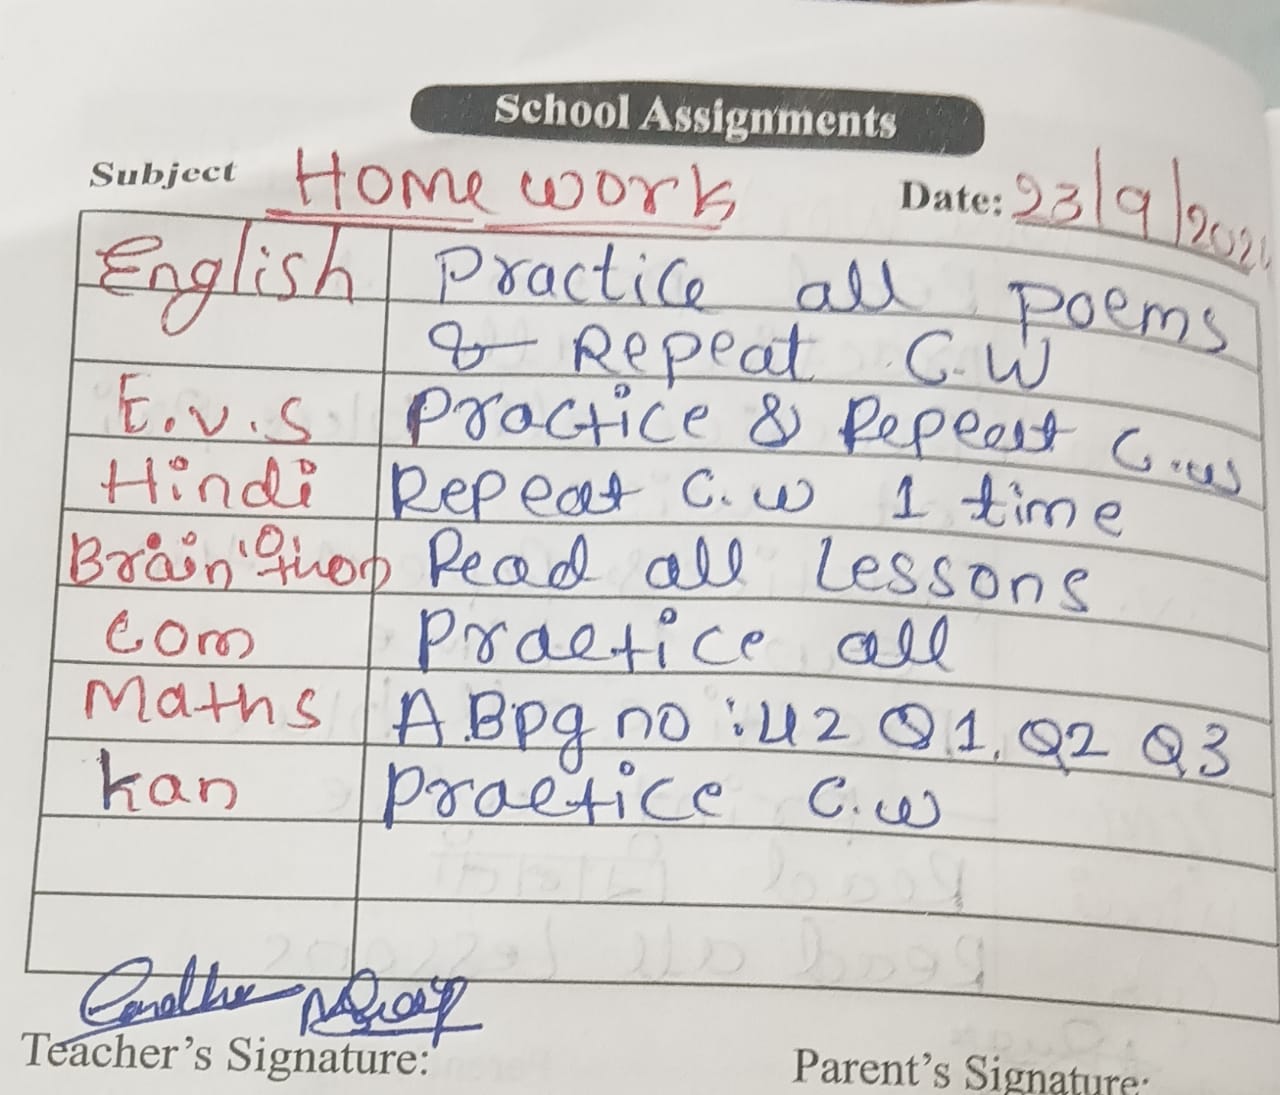 School Assignments
Subject Home work Date: 23/9/202
English Practice all poems
& Repeat C.W
E.v.s Practice & Repeat C.w
Hindi Repeat C.w 1 time
Brain Read all Lessons
Com Practice all
Maths A.B pg no : 42 Q1, Q2 Q3
kan Practice C.w
Teacher's Signature:
Parent's Signature: